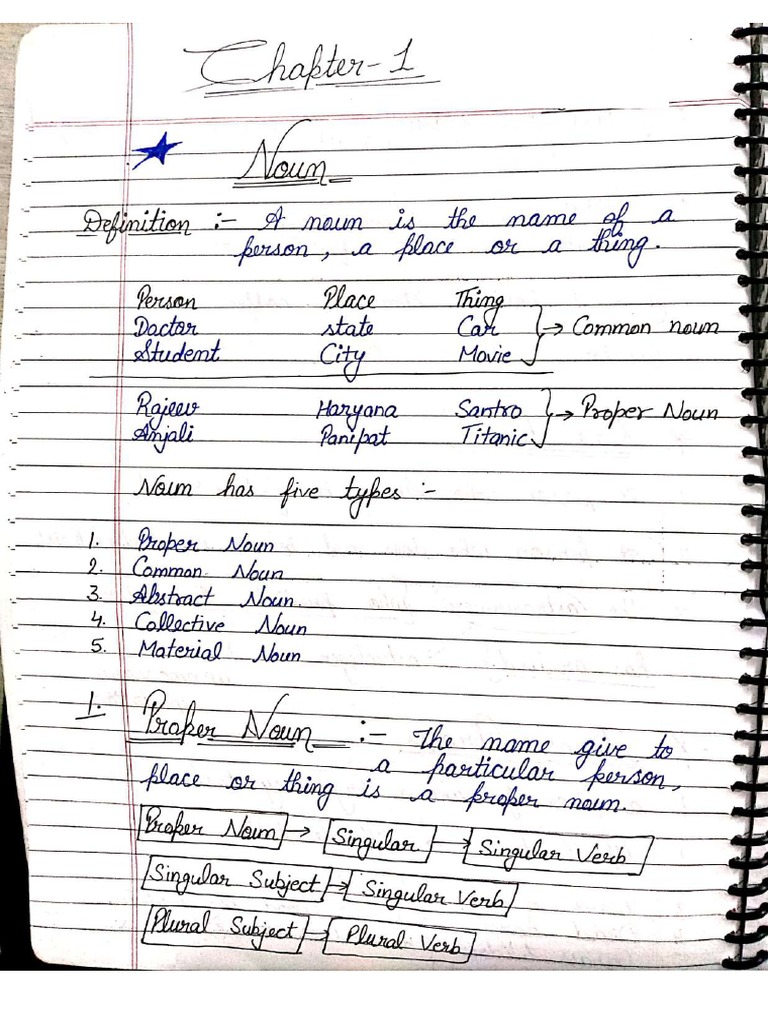 Chapter-1
Noun
Definition :- A noun is the name of a
person, a place or a thing.
Person Place Thing
Doctor state Car → Common noun
Student City Movie
Rajeev Haryana Santro → Proper Noun
Anjali Panipat Titanic
Noun has five types :-
1. Proper Noun
2. Common Noun
3. Abstract Noun.
4. Collective Noun
5. Material Noun
1. Proper Noun :- The name give to
a particular person,
place or thing is a proper noun.
Proper Noun → Singular → Singular Verb
Singular Subject → Singular Verb
Plural Subject → Plural Verb